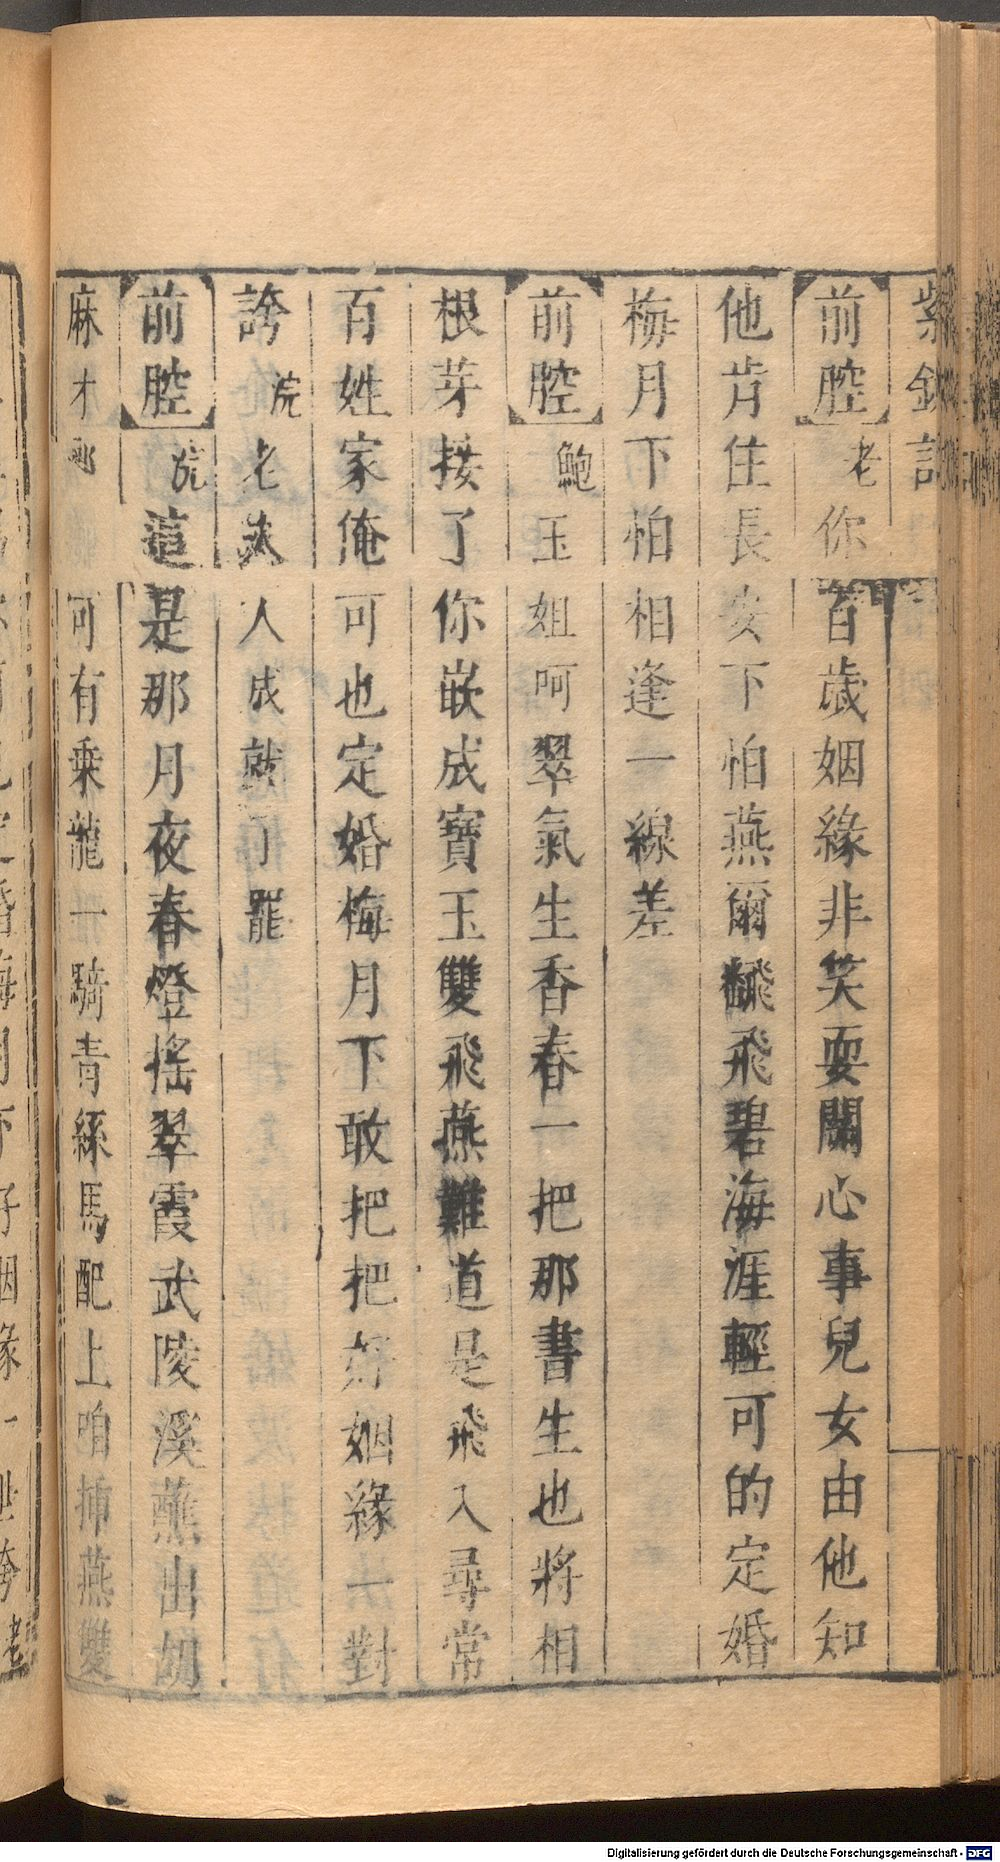 紫釵記
前腔 老 你百歲姻緣非笑耍關心事兒女由他知
他肯住長安下怕燕爾飜飛碧海涯輕可的定婚
梅月下怕相逢一線差
前腔 鮑 玉姐呵翠氣生香春一把那書生也將相
根芽接了你嵌成寶玉雙飛燕難道是飛入尋常
百姓家俺可也定婚梅月下敢把把好姻緣一對
誇 浣 老夫人成就了罷
前腔 浣 這是那月夜春燈搖翠霞武陵溪蘸出胡
麻才 可有乗龍一騎青絲馬配上咱揷燕雙
Digitalisierung gefördert durch die Deutsche Forschungsgemeinschaft - DFG